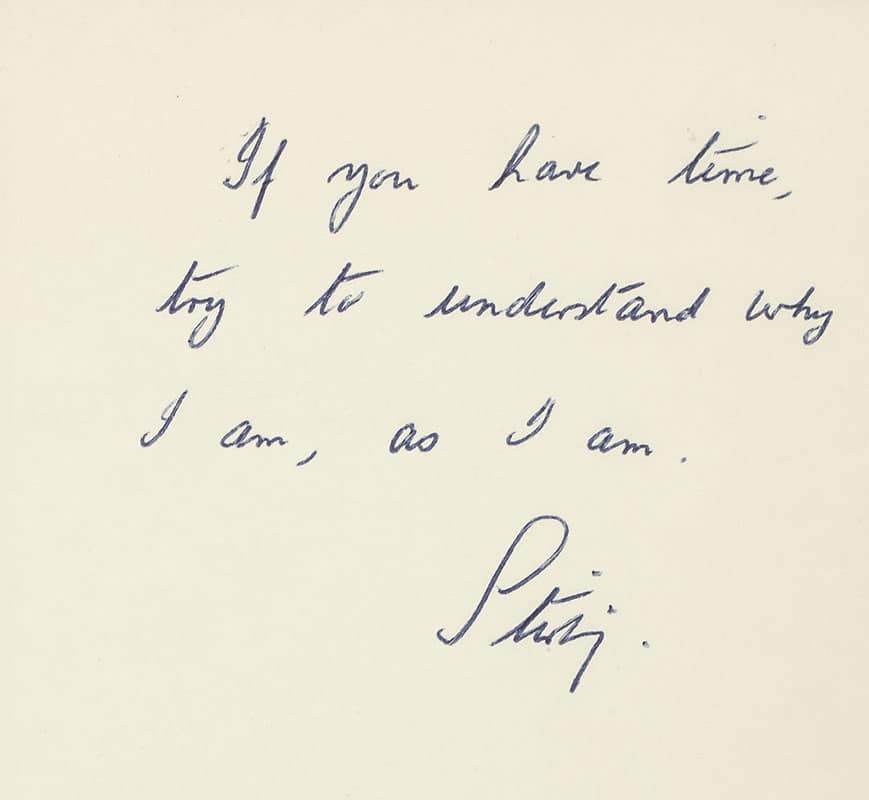 If you have time,
try to understand why
I am, as I am.